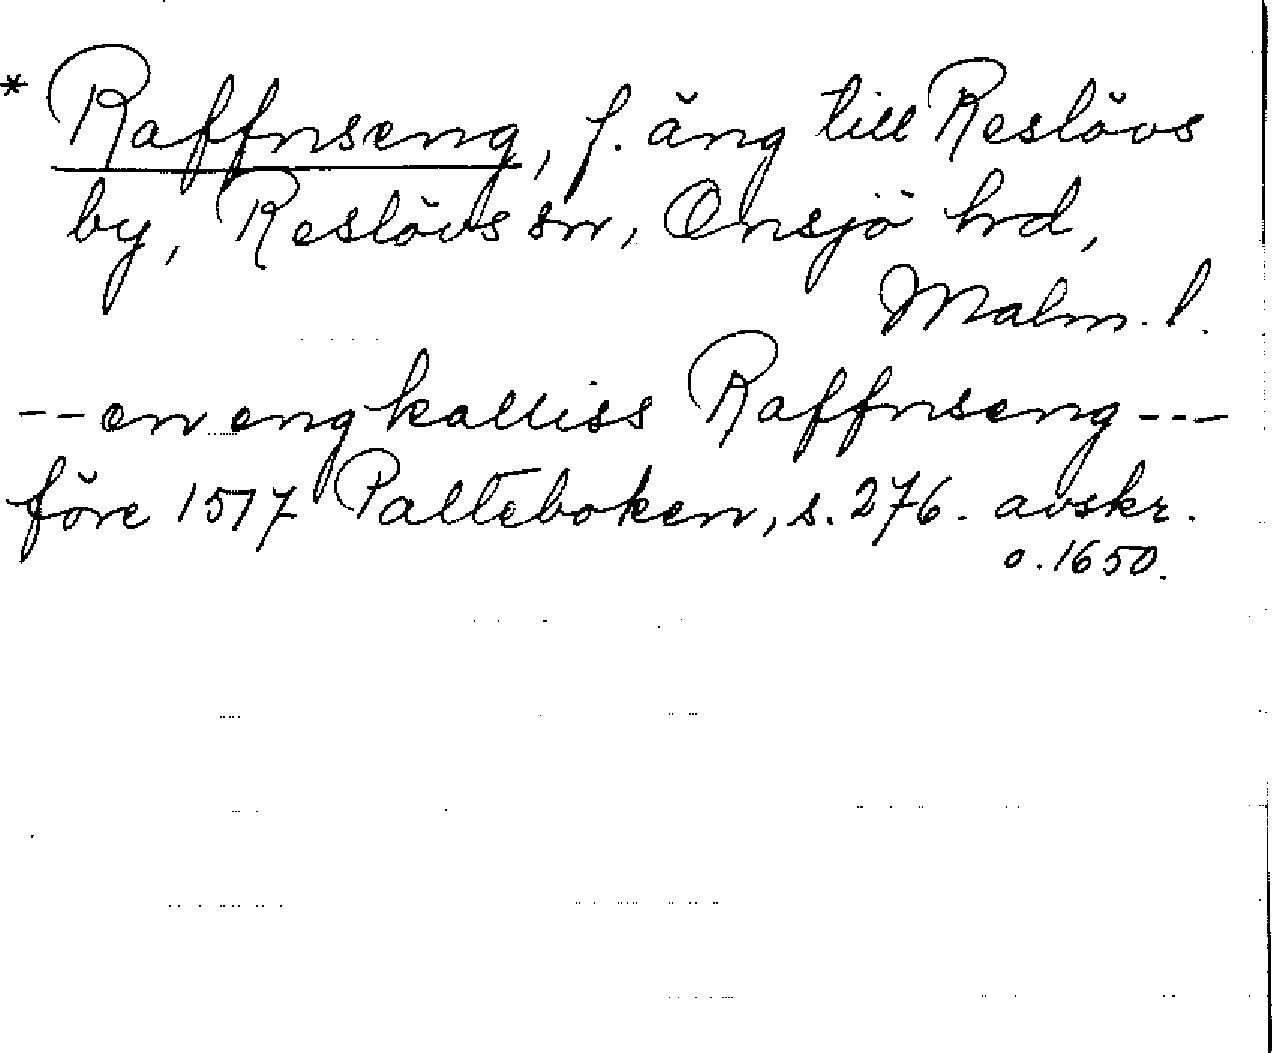 * Raffnseng, f. äng till Reslövs
by, Reslövs sn, Onsjö hrd,
Malm. l.
-- en eng kalliss Raffnseng ---
före 1517 Palteboken, s. 276. avskr.
o. 1650.